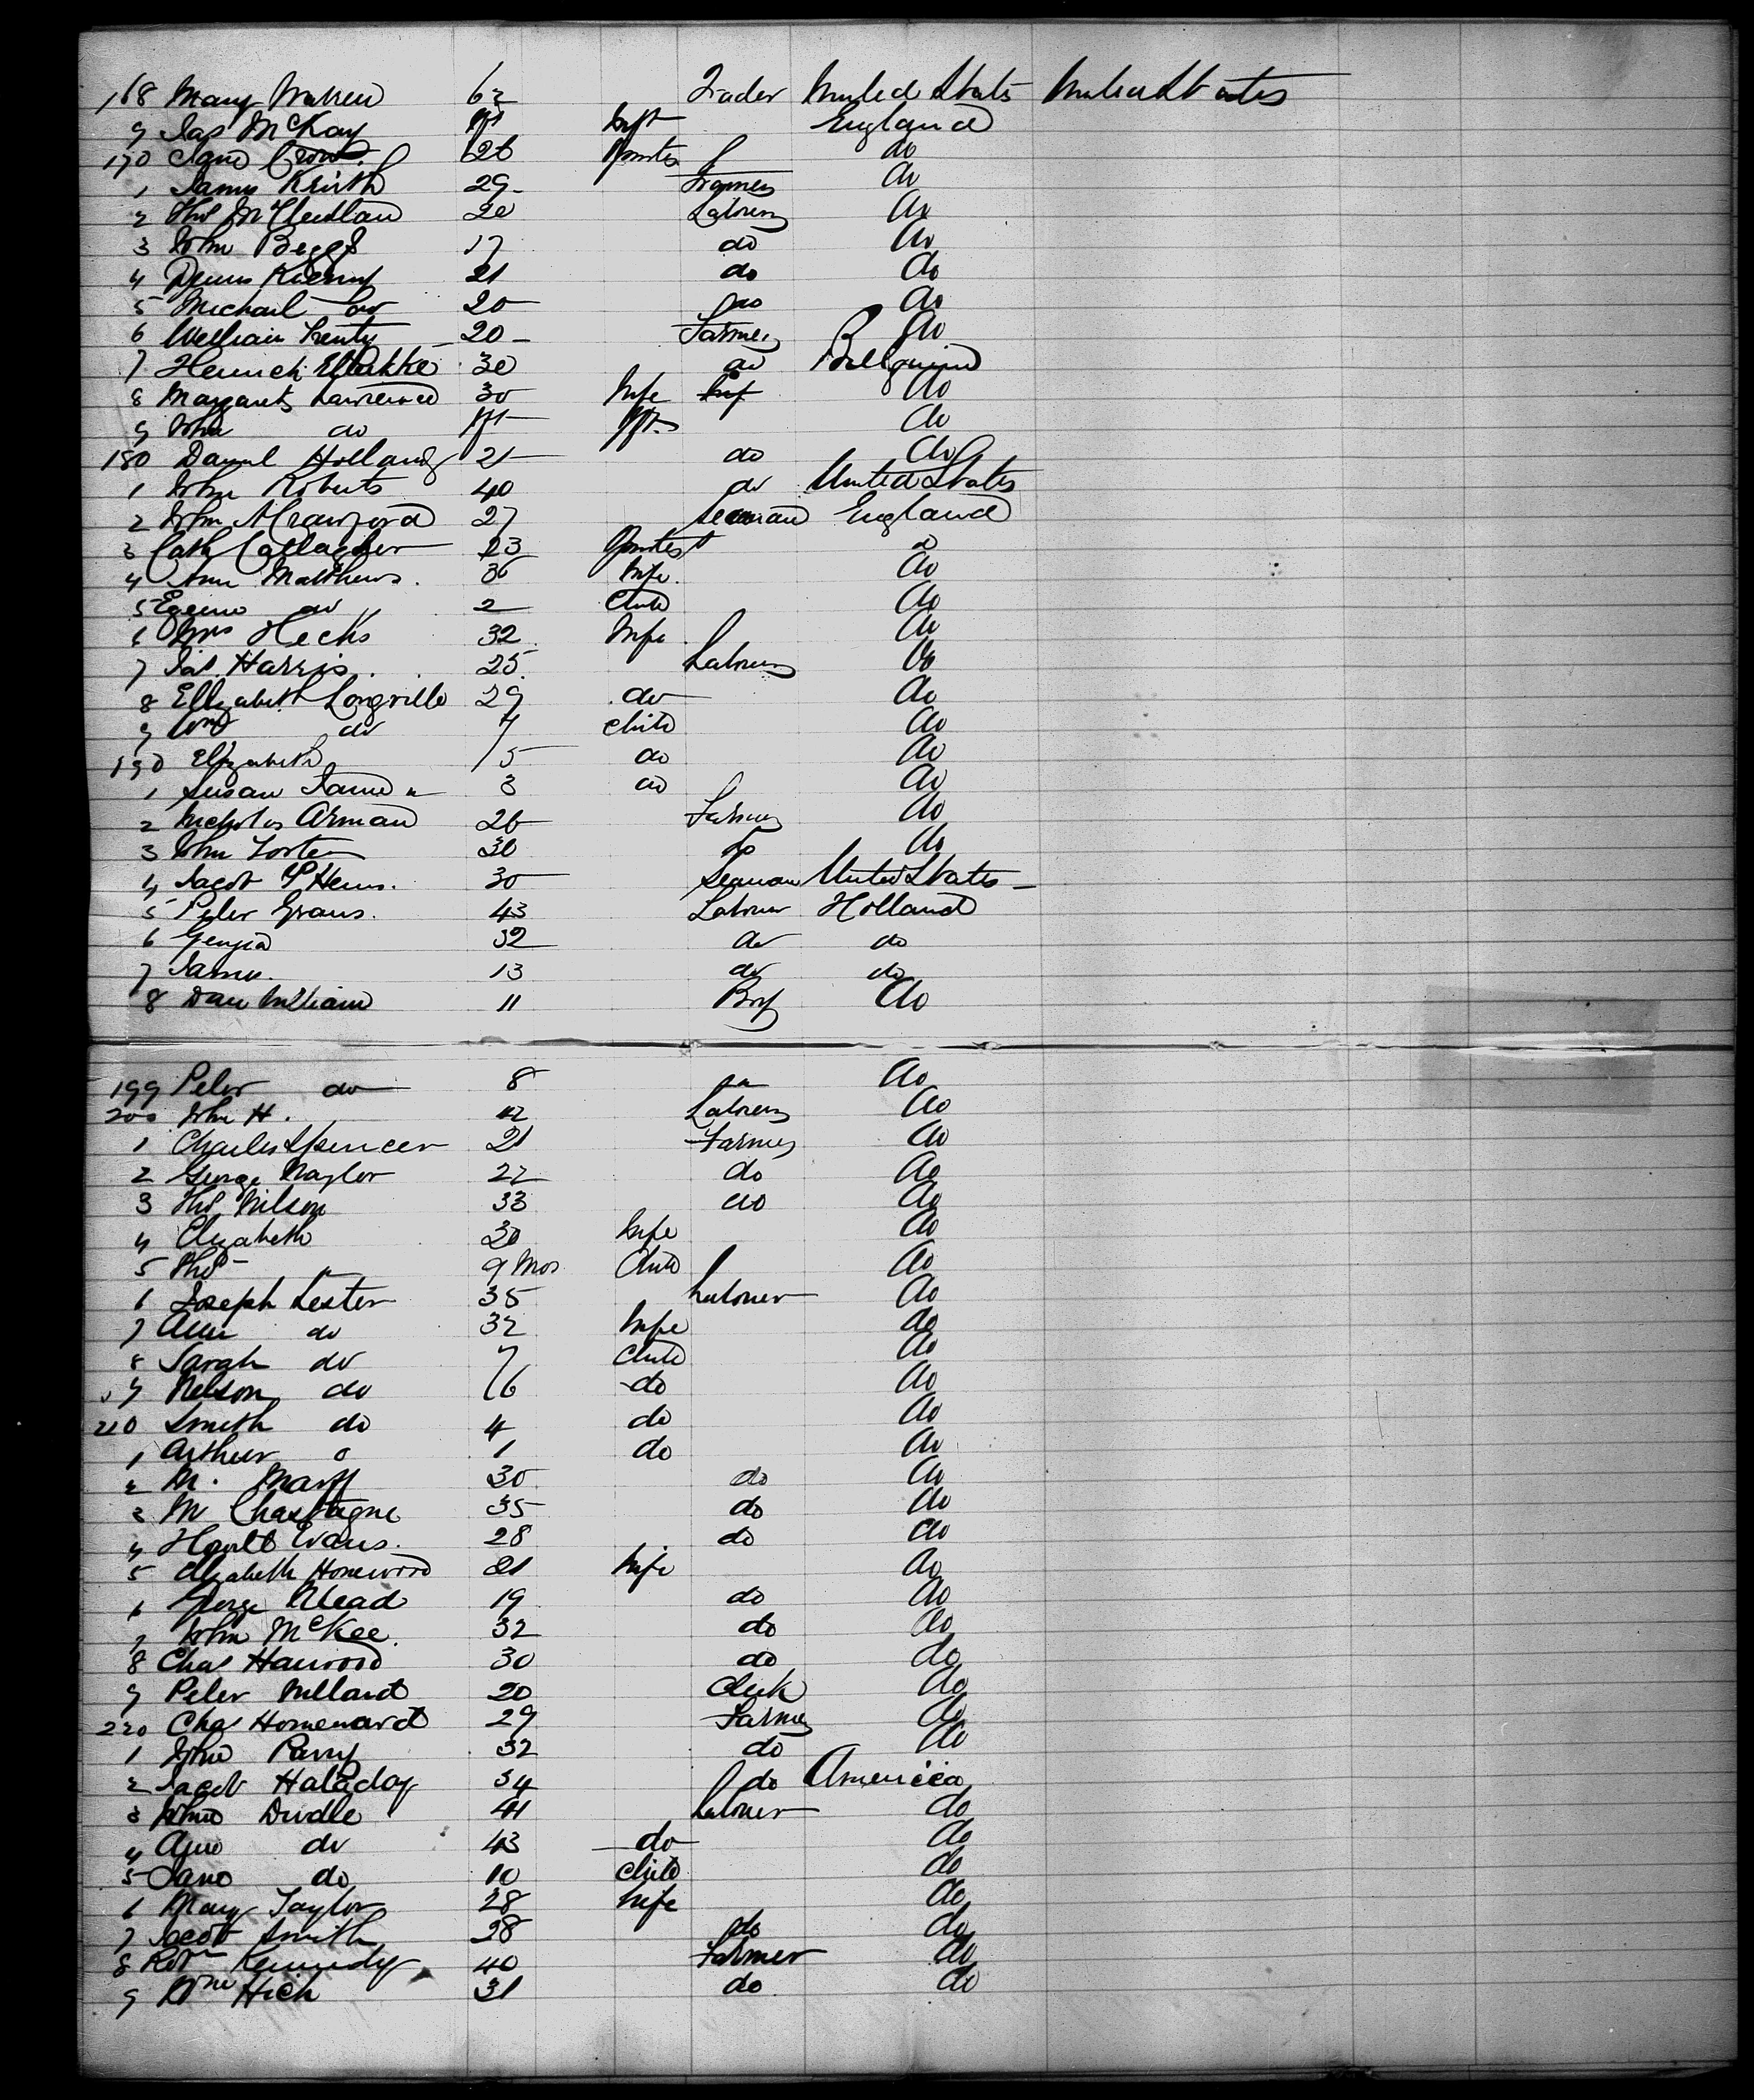 168 Mary Warren 62 Trader United States United States
9 Jas McKay Inft Inft England
170 Jane Spinster do
1 James Keirth 29 Farmer do
2 Thos 20 Laborer do
3 John Beggs 17 do do
4 Dennis 21 do do
5 Michael do 20 do do
6 William 20 Farmer do
7 Heinrich 30 do Bellguim
8 Margaret Lawrence 30 Wife do
9 John do Inft Inft do
180 Daniel Holland 21 do do
1 John Roberts 40 do United States
2 John Crawford 27 Seaman England
3 Cath Callagher 23 Spinster do
4 Ann Matthews. 36 Wife. do
5 do 2 Child do
6 Mrs Hecks 32 Wife. do
7 Jas. Harris. 25 Laborer do
8 Elizabeth Longville 29 do do
9 Wm do 7 Child do
190 Elizabeth 5 do do
1 Susan " 3 do do
2 Nicholas Arman 26 Farmer do
3 John 30 do do
4 Jacob 30 Seaman United States
5 Peter 43 Laborer Holland
6 32 do do
7 James. 13 do do
8 Dan William 11 Boy do
199 Peter do 8 do
200 John H. Laborer do
1 Charles Spencer 21 Farmer do
2 George Naylor 22 do do
3 Thos Wilson 33 do do
4 Elizabeth 30 Wife do
5 Thos " 9 Mos Child do
6 Joseph Lester 35 Laborer do
7 do 32 Wife do
8 Sarah do 7 Child do
9 Nelson do 6 do do
210 Smith do 4 do do
1 Arthur 1 do do
2 M. 30 do do
3 M Chastagne 35 do do
4 Evans. 28 do do
5 Elizabeth Homewood 21 Wife do
6 George Mead 19 do do
7 John McKee 32 do do
8 Chas Harwood 30 do do
9 Peter Millard 20 Clerk do
220 Chas Homeward 29 Farmer do
1 John Parry 32 do do
2 Jacob Haladay 34 do America
3 John Dudle 41 Laborer do
4 Ann do 43 do do
5 Jane do 10 Child do
6 Mary Taylor 28 Wife do
7 Jacob Smith 28 do do
8 Kennedy 40 Farmer do
9 Wm Hick 31 do do